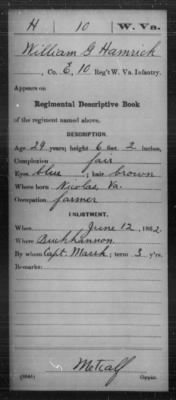 H 10 W. Va.
William G Hamrick
, Co. E, 10 Reg't W. Va. Infantry.
Appears on
Regimental Descriptive Book
of the regiment named above.
DESCRIPTION.
Age 29 years; height 6 feet 2 inches.
Complexion fair
Eyes blue ; hair brown
Where born Nicolas, Va.
Occupation farmer
ENLISTMENT.
When June 12, 1862.
Where Buckhannon.
By whom Capt. Marsh; term 3 y'rs.
Remarks:
Metcalf
Copyist.